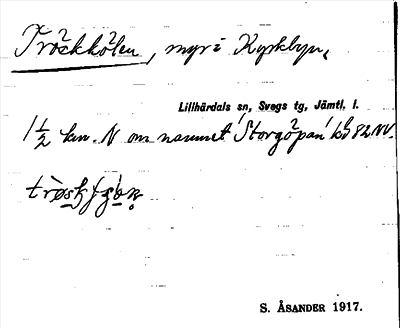 Tröckhölen, myr i Kyrkbyn,
Lillhärdals sn, Svegs tg, Jämtl. l.
1 1/2 km. N om namnet Storgöpan kb 82 NV.
S. ÅSANDER 1917.